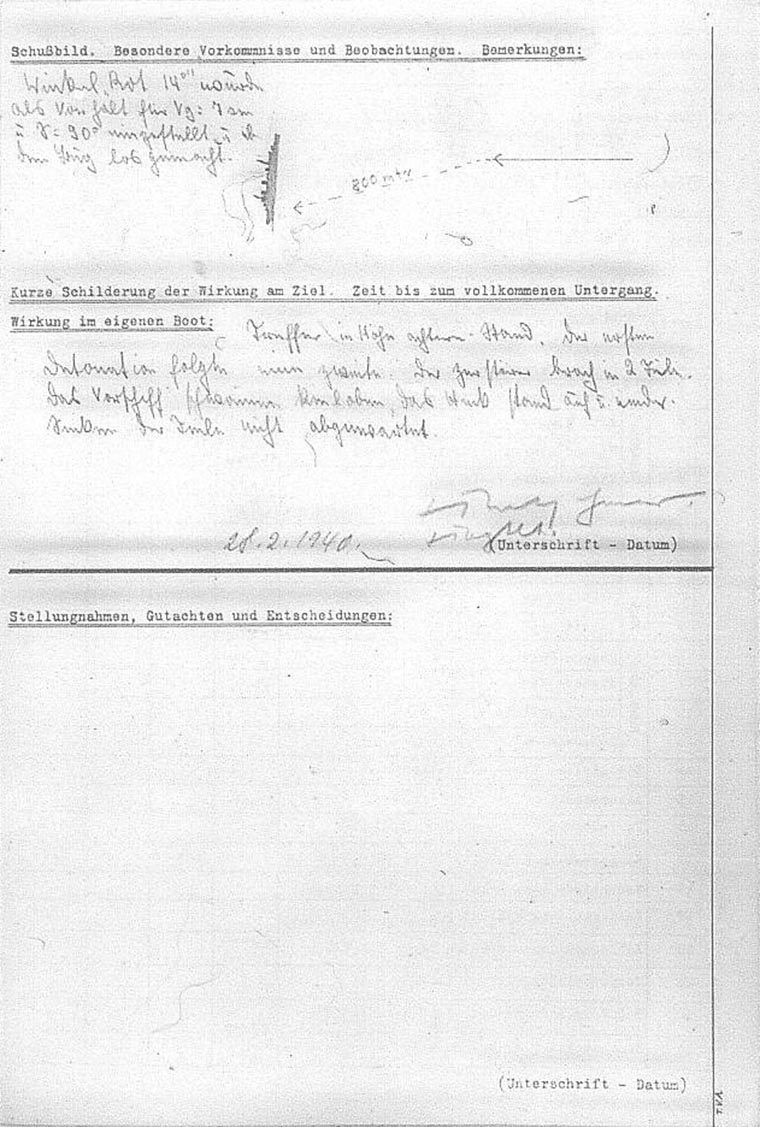 Schußbild. Besondere Vorkommnisse und Beobachtungen. Bemerkungen:
Winkel „Rot 14°" wurde
als Vorhalt für Vg= 7 sm
u γ= 90° eingestellt u
dem Bug los gemacht.
800 mtr
Kurze Schilderung der Wirkung am Ziel. Zeit bis zum vollkommenen Untergang.
Wirkung im eigenen Boot:
Treffer in Höhe achterer Stand. Der ersten
Detonation folgte eine zweite. Der Zerstörer brach in 2 Teile.
Das Vorschiff schwamm kieloben, das Heck stand auf
Sinken der Teile nicht abgewartet.
28.2.1940.
(Unterschrift - Datum)
Stellungnahmen, Gutachten und Entscheidungen:
(Unterschrift - Datum)
TVA